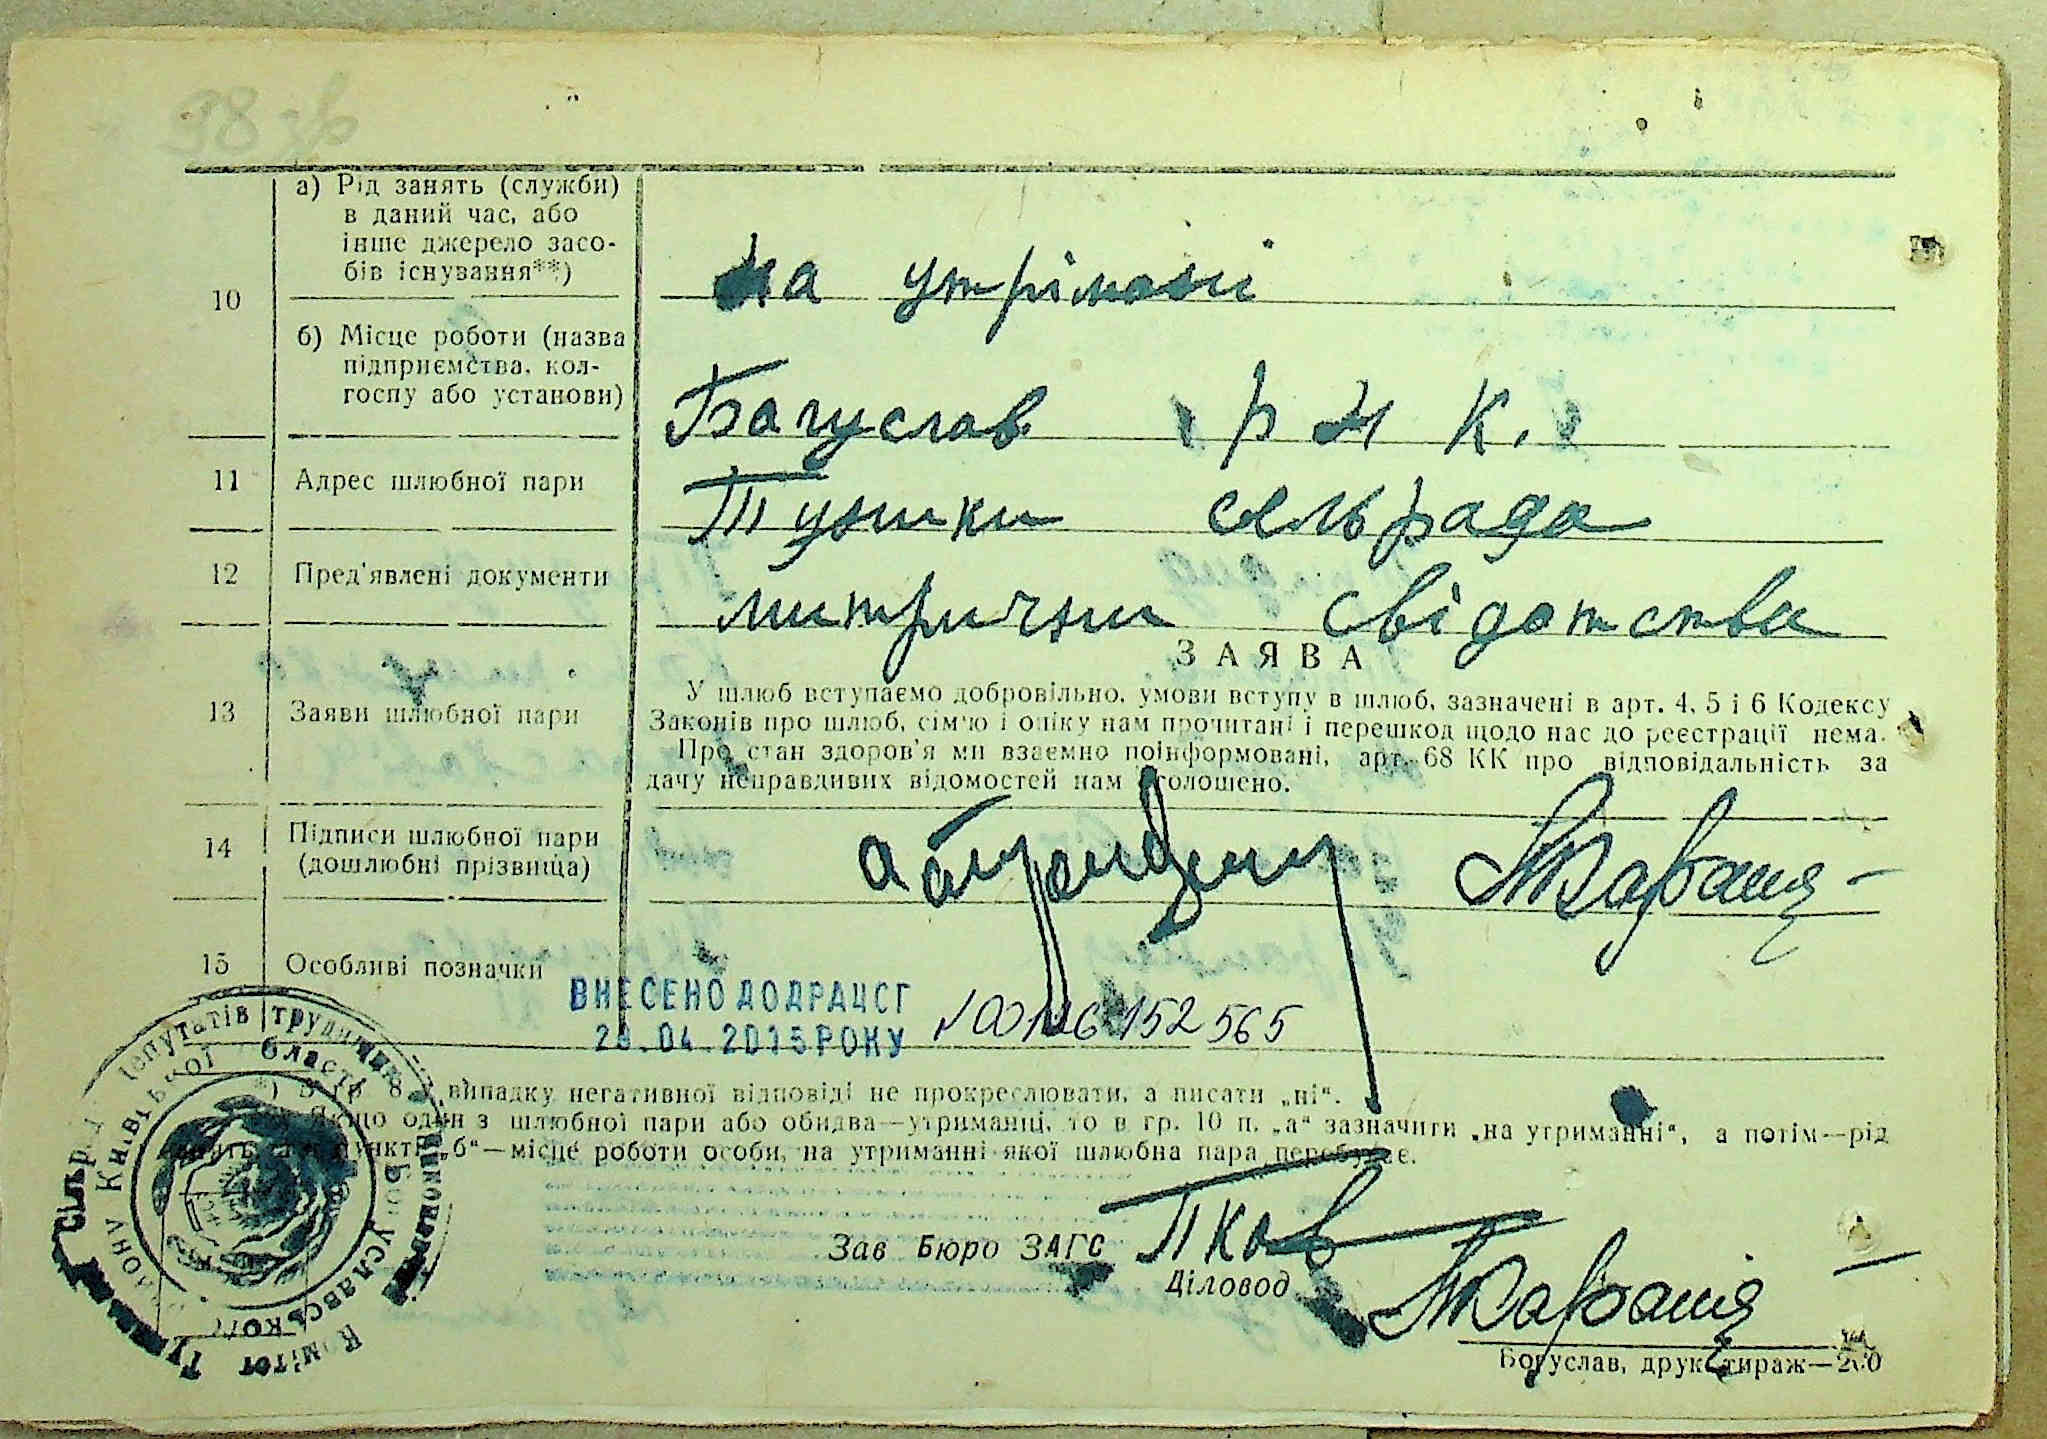 98 зв
10
а) Рід занять (служби)
в даний час, або
інше джерело засо-
бів існування**)
на утрімані
б) Місце роботи (назва
підприємства, кол-
госпу або установи)
Багуслав Р И К.
11
Адрес шлюбної пари
Туники сельрада
12
Пред'явлені документи
митрични свідотства
13
Заяви шлюбної пари
ЗАЯВА
У шлюб вступаємо добровільно, умови вступу в шлюб, зазначені в арт. 4, 5 і 6 Кодексу
Законів про шлюб, сім'ю і опіку нам прочитані і перешкод щодо нас до реєстрації нема.
Про стан здоров'я ми взаємно поінформовані, арт. 68 КК про відповідальність за
дачу неправдивих відомостей нам оголошено.
14
Підписи шлюбної пари
(дошлюбні прізвища)
15
Особливі позначки
ВНЕСЕНО ДО ДРАЦСГ
2015 РОКУ
N00126152565
*) В гр. 8 у випадку негативної відповіді не прокреслювати, а писати „ні“.
Якщо один з шлюбної пари або обидва—утриманці, то в гр. 10 п. „а“ зазначити „на утриманні“, а потім—рід
занять, а в пункті „б“—місце роботи особи, на утриманні якої шлюбна пара перебуває.
Зав Бюро ЗАГС
Діловод
Богуслав, друк. тираж—200
депутатів трудящих
Виконавчий Комітет
Київської області
Богуславського району